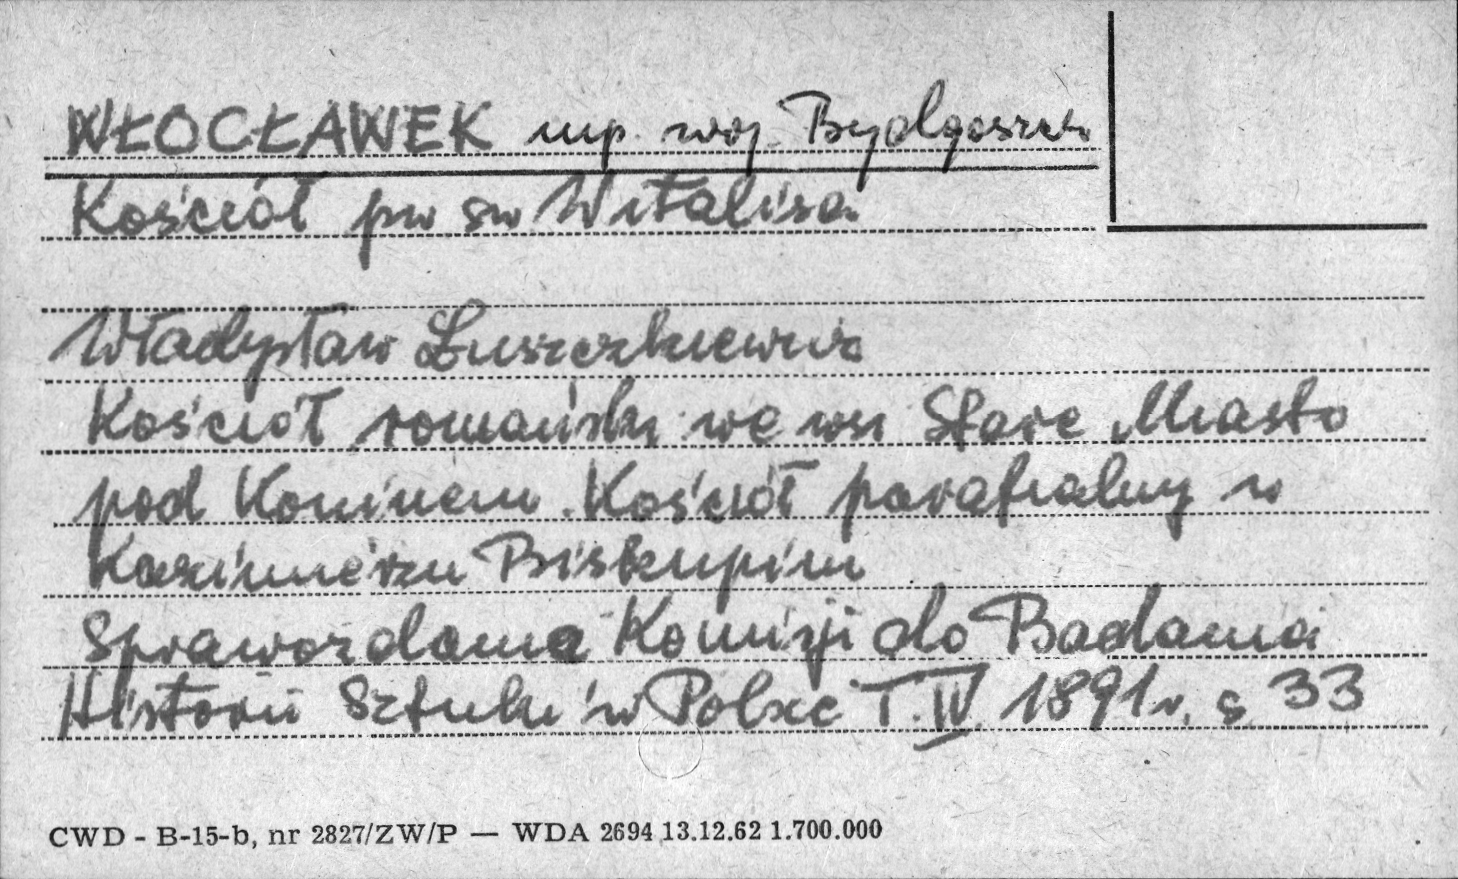 WŁOCŁAWEK mp. woj. Bydgoszcz
Kościół pw św Witalisa
Władysław Łuszczkiewicz
Kościół romański we wsi Stare Miasto
pod Koninem. Kościół parafialny w
Kazimierzu Biskupim
Sprawozdania Komisji do Badania
Historii Sztuki w Polsce T. IV 1891 r. s 33
CWD - B-15-b, nr 2827/ZW/P — WDA 2694 13.12.62 1.700.000